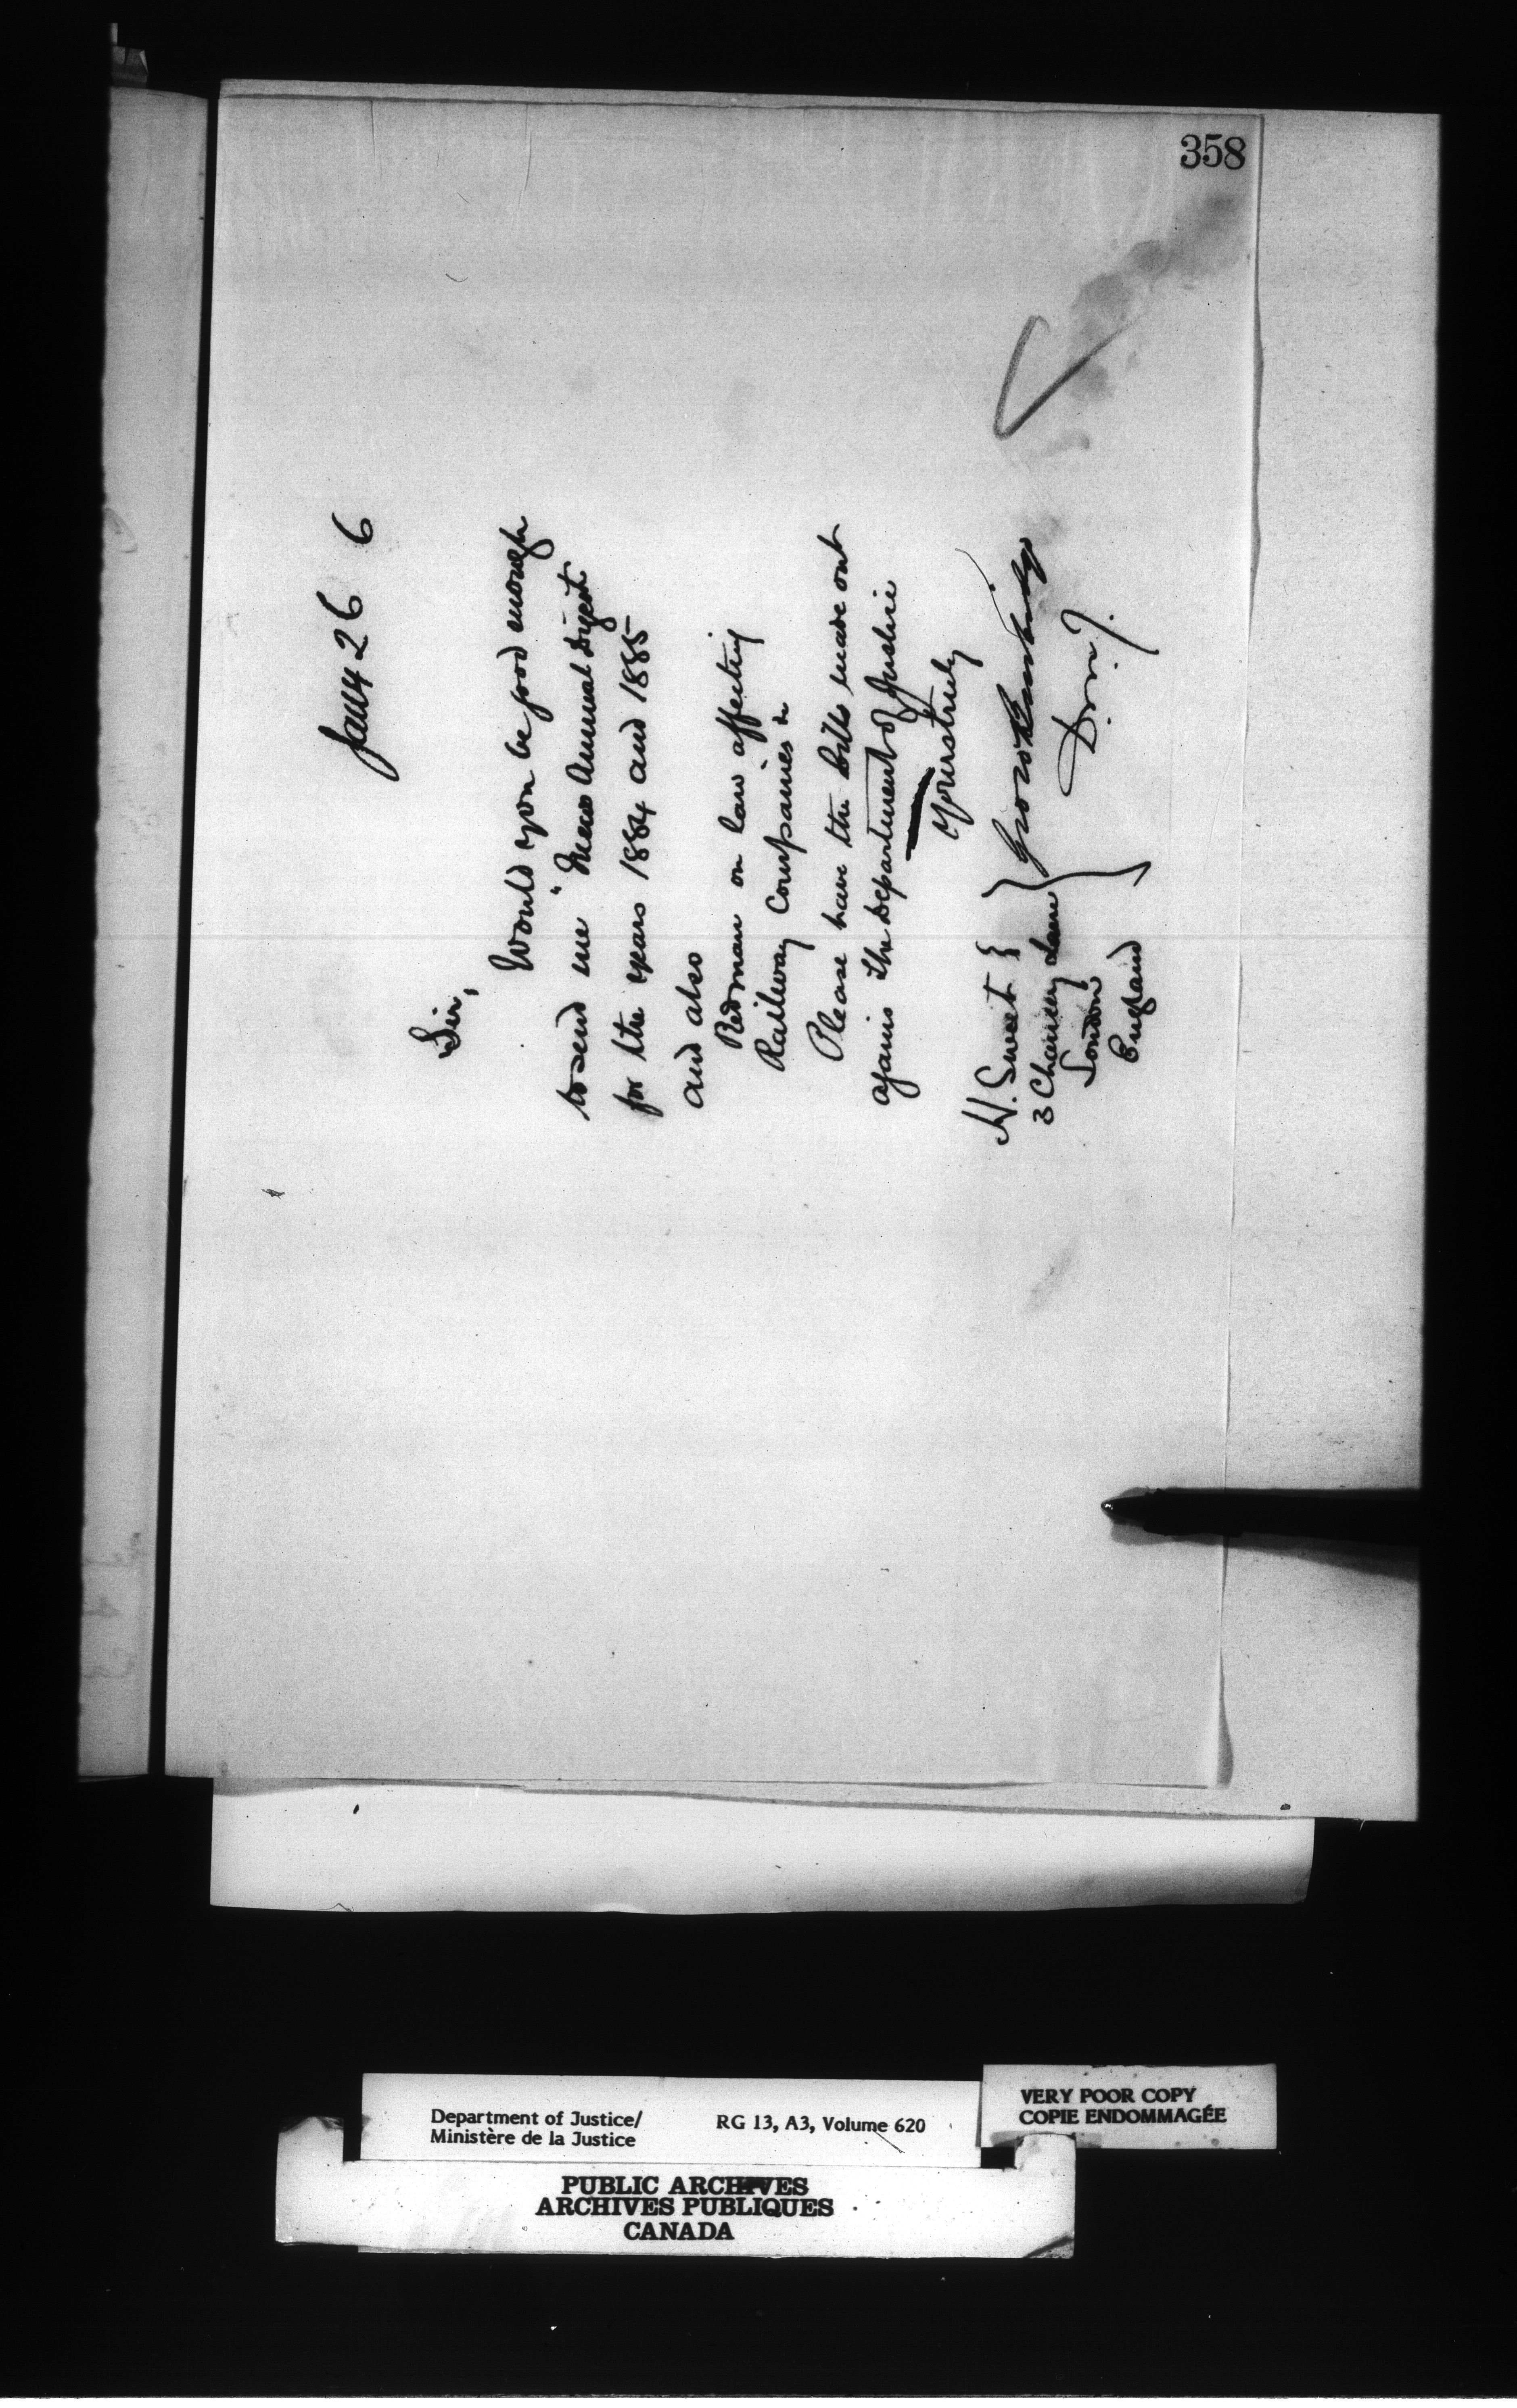 358
Jany 26 6
Sir,
Would you be good enough
to send me "Mews Annual Digest"
for the years 1884 and 1885
and also
Redman on law affecting
Railway Companies &c
Please have the bills made out
agains the Department of Justice
Yours truly
Geo W Burbidge
D.M.J.
H. Sweet
3 Chancery Lane
London
England
Department of Justice/
Ministère de la Justice
RG 13, A3, Volume 620
VERY POOR COPY
COPIE ENDOMMAGÉE
PUBLIC ARCHIVES
ARCHIVES PUBLIQUES
CANADA